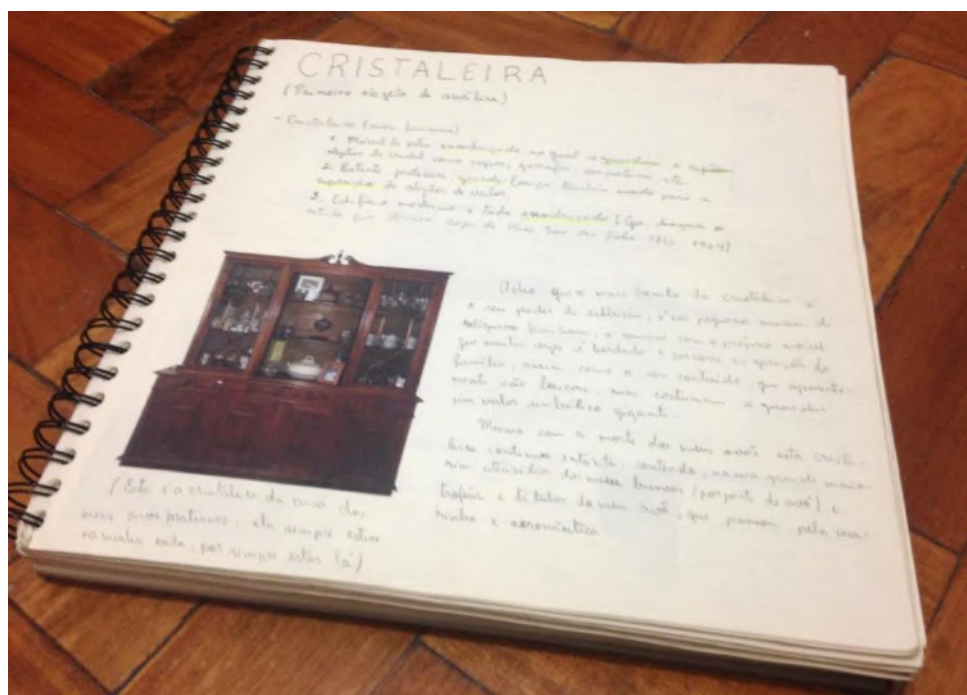 CRISTALEIRA
(Primeiro objeto de análise)
- Cristaleira (subs. feminino)
1. Móvel de sala envidraçado no qual se guardam e expõem
objetos de cristal como copos, garrafas, compoteiras etc.
2. Estante, prateleira, guarda-louça também usado para a
exposição de objetos de valor.
3. Edifício moderno e todo envidraçado
Acho que o mais bonito da cristaleira é
o seu poder de exibição, é um pequeno museu de
relíquias familiares, a começar com o próprio móvel
que muitas vezes é herdado e percorre as gerações da
família, assim como o seu conteúdo que aparente-
mente são louças, mas costumam a guardar
um valor simbólico gigante.
Mesmo com a morte dos meus avós esta crista-
leira continua intacta, contendo, na sua grande maio-
ria utensílios dos meus bisavós (por parte de avó) e
troféus e títulos do meu avô, que passou pela ma-
rinha e aeronáutica
(Esta é a cristaleira da casa dos
meus avós paternos, ela sempre esteve
na minha vida, por sempre estar lá)